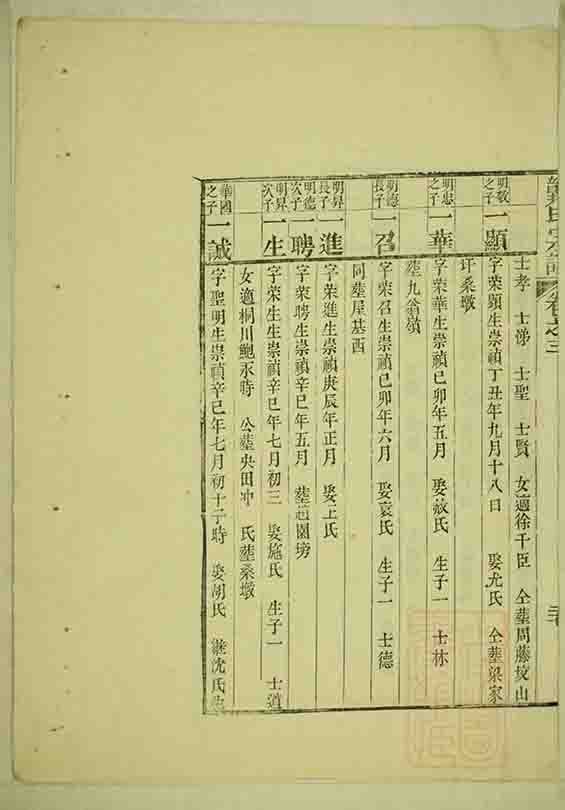 氏宗譜 卷之三
士孝 士悌 士聖 士賢 女適徐千臣 仝塟周藤坟山
明教之子 一顯 字荣顕生崇禎丁丑年九月十八日 娶尤氏 仝塟梁家
圩桑墩
明忠之子 一華 字荣華生崇禎己卯年五月 娶氏 生子一 士林
塟九翁嶺
明德長子 一召 字荣召生崇禎己卯年六月 娶袁氏 生子一 士德
同塟屋基西
明昇長子 一進 字荣進生崇禎庚辰年正月 娶王氏
明德次子 一聘 字荣聘生崇禎辛巳年五月 塟園塝
明昇次子 一生 字荣生生崇禎辛巳年七月初三 娶施氏 生子一 士道
女適桐川鮑永時 公塟央田冲 氏塟桑墩
華國之子 一誠 字聖明生崇禎辛巳年七月初十子時 娶胡氏 沈氏生